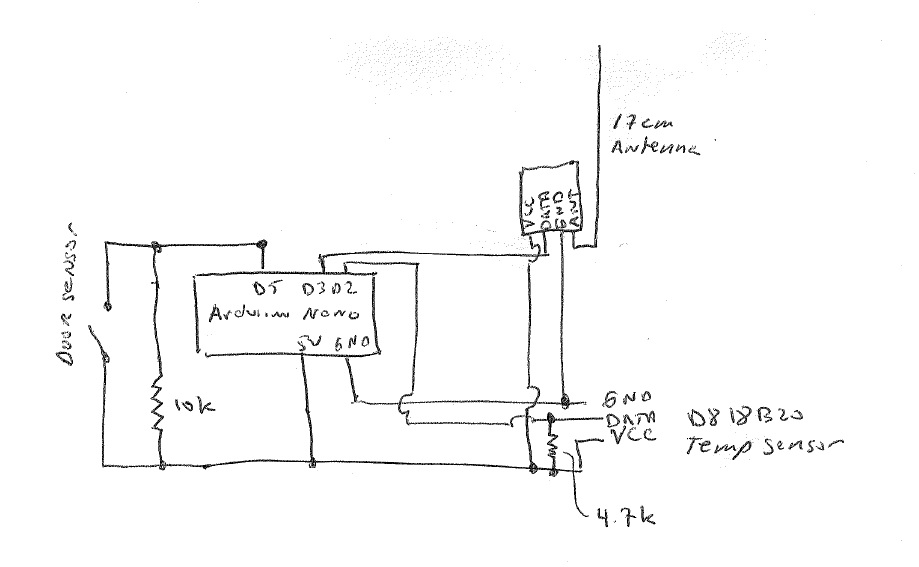 17cm
Antenna
VCC
DATA
GND
ANT
Door sensor
D5 D3 D2
Arduino Nano
5V GND
10k
GND
DATA
VCC
DS18B20
Temp sensor
4.7k